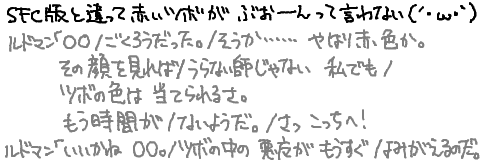 SFC版と違って赤いツボが ぶおーんって言わない(´･ω･`)
ルドマン「○○！ごくろうだった。！そうか…… やはり赤色か。
その顔を見れば！うらない師じゃない 私でも！
ツボの色は 当てられるさ。
もう時間が！ないようだ。！さっ こっちへ！
ルドマン「いいかね ○○。！ツボの中の 悪夜が もうすぐ！よみがえるのだ。